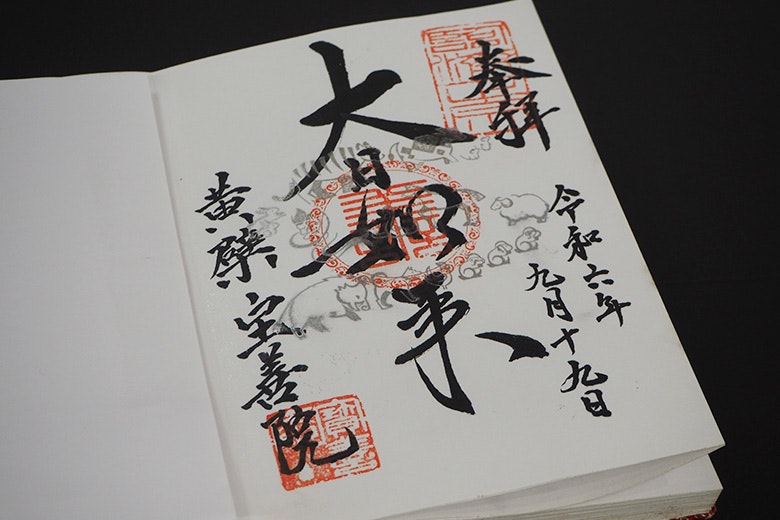 奉拝
令和六年
九月十九日
大日如来
黄檗宝善院